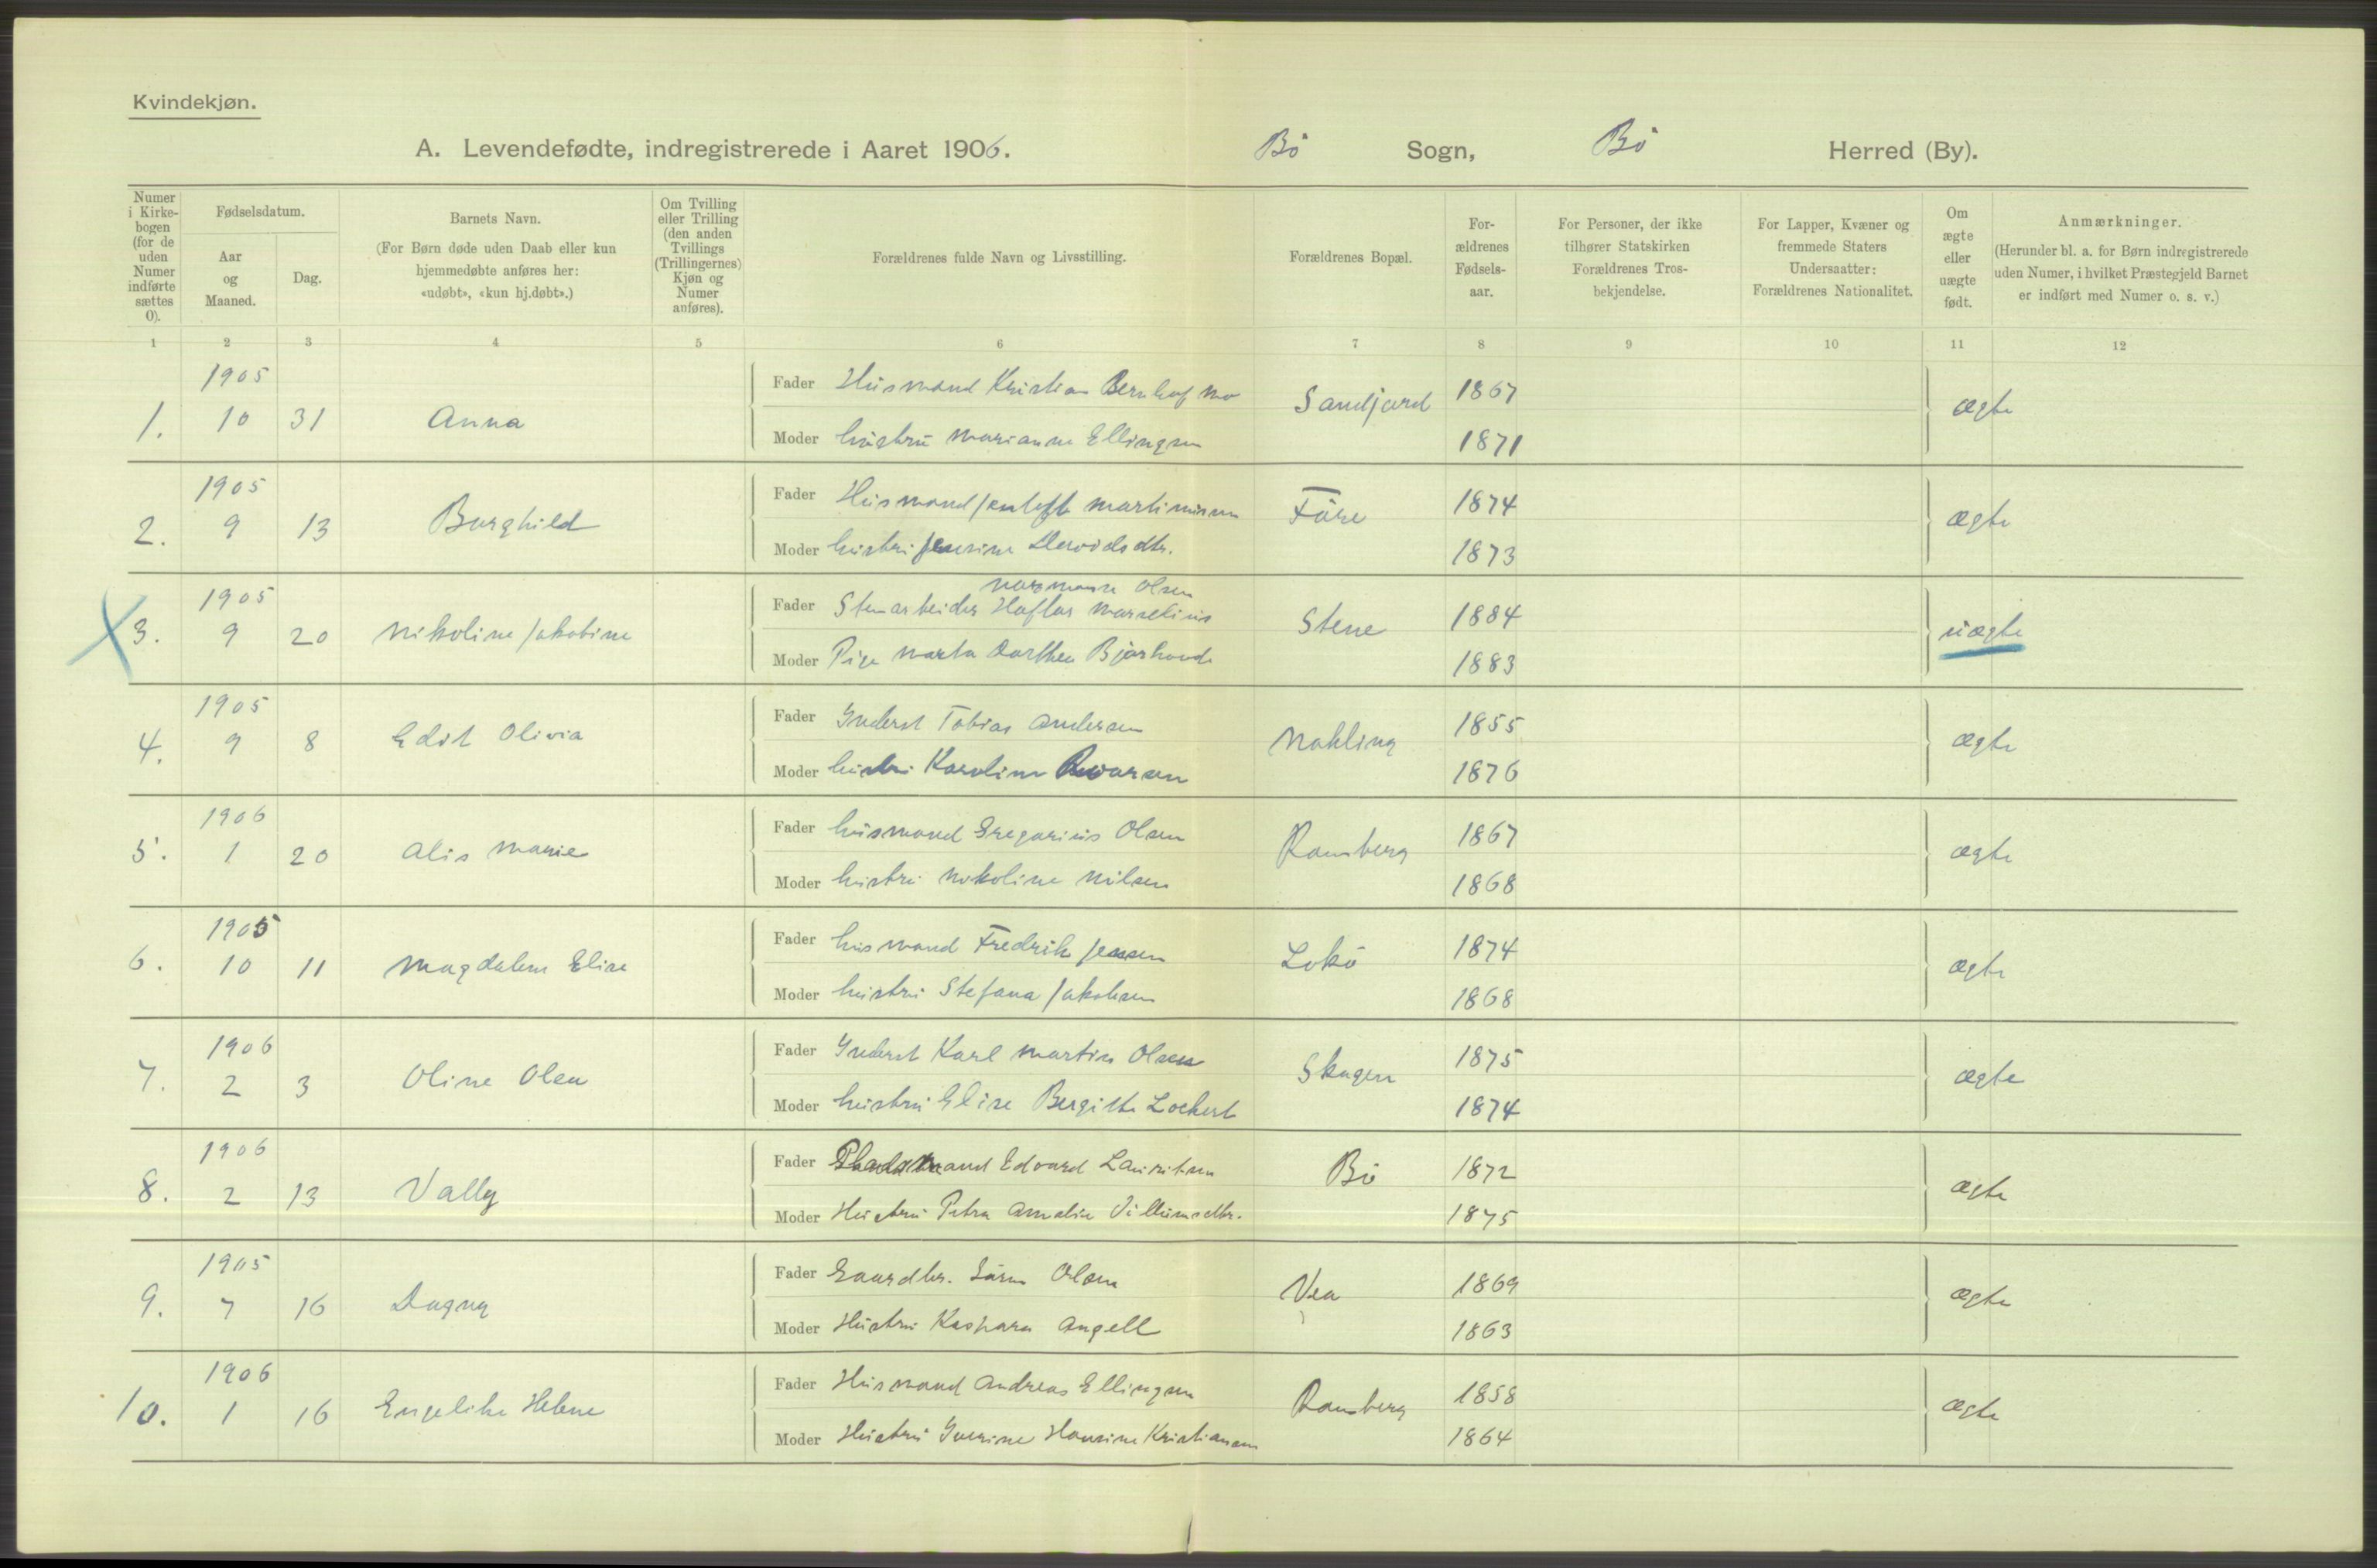 Kvindekjøn.
A. Levendefødte, indregistrerede i Aaret 1906.
Bö Sogn, Bö Herred (By).
Numer i Kirkebogen (for de uden Numer indførte sættes 0).
Fødselsdatum.
Aar og Maaned.
Dag.
Barnets Navn.
(For Børn døde uden Daab eller kun hjemmedøbte anføres her: «udøbt», «kun hj.døbt».)
Om Tvilling eller Trilling (den anden Tvillings (Trillingernes) Kjøn og Numer anføres).
Forældrenes fulde Navn og Livsstilling.
Forældrenes Bopæl.
Forældrenes Fødselsaar.
For Personer, der ikke tilhører Statskirken Forældrenes Trosbekjendelse.
For Lapper, Kvæner og fremmede Staters Undersaatter: Forældrenes Nationalitet.
Om ægte eller uægte født.
Anmærkninger.
(Herunder bl. a. for Børn indregistrerede uden Numer, i hvilket Præstegjeld Barnet er indført med Numer o. s. v.)
1 2 3 4 5 6 7 8 9 10 11 12
1905
1. 10 31 Anna
Fader Husmand Kristian Bernhof Mo Sandjord 1867 ægte
Moder hustru Marianne Ellingsen 1871
1905
2. 9 13 Borghild
Fader Husmand Jentoft Martinussen Före 1874 ægte
Moder hustru Jensine 1873
1905
3. 9 20 Nikoline Jakobine
Normann Olsen
Fader Stenarbeider Haflor Marselius Stene 1884 uægte
Moder Pige Marta Dorthea 1883
1905
4. 9 8 Edit Olivia
Fader Inderst Tobias Andersen Nykling 1855 ægte
Moder hustru Karoline 1876
1906
5. 1 20 Alis Marie
Fader husmand Gregorius Olsen Ramberg 1867 ægte
Moder hustru Nikoline Nilsen 1868
1905
6. 10 11 Magdalene Elise
Fader husmand Fredrik Jensen Lokö 1874 ægte
Moder hustru Stefana Jakobsen 1868
1906
7. 2 3 Oline Olea
Fader Inderst Karl Martin Olsen Skagen 1875 ægte
Moder hustru Elise Bergitte Lockert 1874
1906
8. 2 13 Vally
Fader Edvard Lauritsen Bö 1872 ægte
Moder Hustru Petra Amalie Villumsdtr. 1875
1905
9. 7 16 Dagny
Fader Gaardbr. Sören Olsen Vea 1869 ægte
Moder Hustru Kaspara Angell 1863
1906
10. 1 16 Engelike Helene
Fader Husmand Andreas Ellingsen Ramberg 1858 ægte
Moder Hustru Iverine Hansine Kristiansen 1864